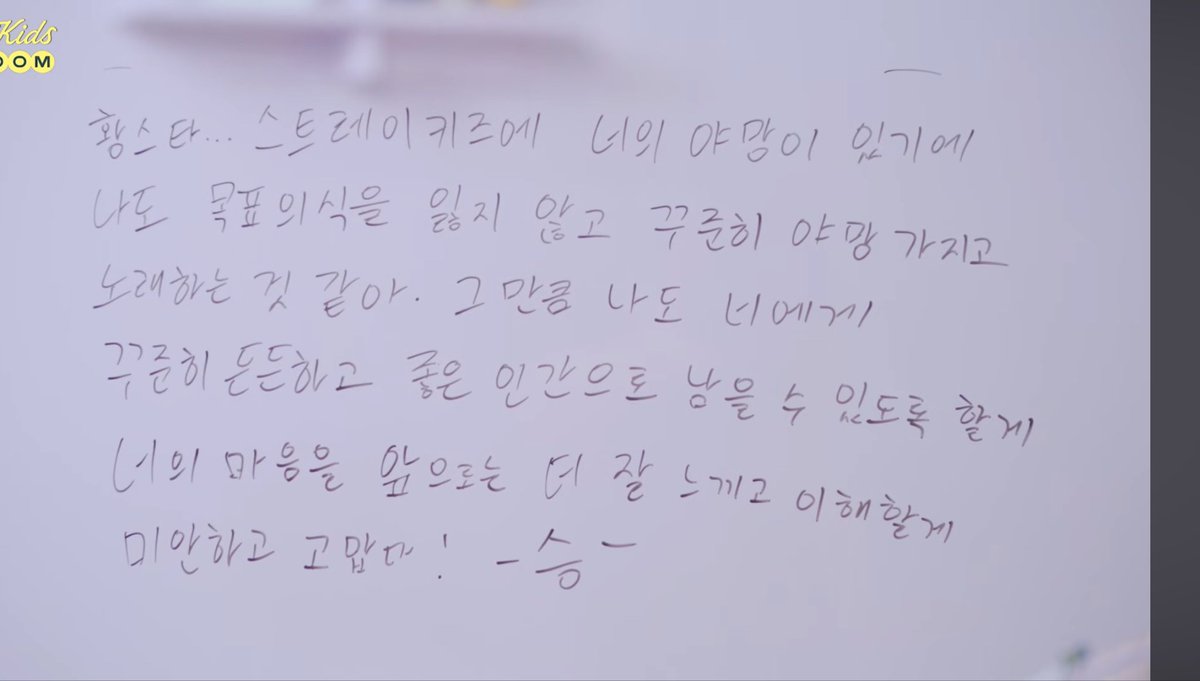 Kids
OOM
황스타... 스트레이키즈에 너의 야망이 있기에
나도 목표의식을 잃지 않고 꾸준히 야망 가지고
노래하는 것 같아. 그만큼 나도 너에게
꾸준히 든든하고 좋은 인간으로 남을 수 있도록 할게
너의 마음을 앞으로는 더 잘 느끼고 이해할게
미안하고 고맙다! -승-